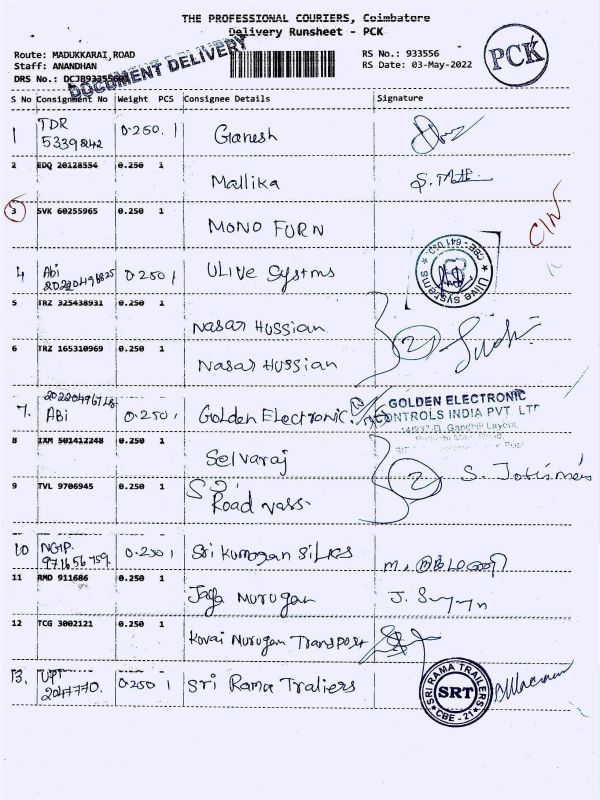 THE PROFESSIONAL COURIERS, Coimbatore
Delivery Runsheet - PCK
Route: MADUKKARAI,ROAD
Staff: ANANDHAN
DRS No.:
DOCUMENT DELIVERY
RS No.: 933556
RS Date: 03-May-2022
PCK
S No Consignment No Weight PCS Consignee Details Signature
1 TDR 5339842 0.250. 1 Ganesh
2 EDQ 20128554 0.250 1 Mallika
3 SVK 60255965 0.250 1 MONO FURN
4 Abi 0.250 1 ULive Systms
CBE - 641 021
Ulive systems
5 TRZ 325438931 0.250 1 Nasar Hussian
6 TRZ 165310969 0.250 1 Nasar Hussian
2
7. ABi 0.250 1 Golden Electronic
GOLDEN ELECTRONIC
CONTROLS INDIA PVT. LTD
8 IXM 501412248 0.250 1 Selvaraj
9 TVL 9706945 0.250 1 Road vass
2
10 NGP. 971656759. 0.250 1 Sri Kumogan Silks
11 RMD 911686 0.250 1 Jaya Murugan
12 TCG 3002121 0.250 1 Kovai Murugan Transport
13. UPT 2047770. 0.250 1 Sri Rama Traliers
SRI RAMA TRAILERS
SRT
CBE - 21